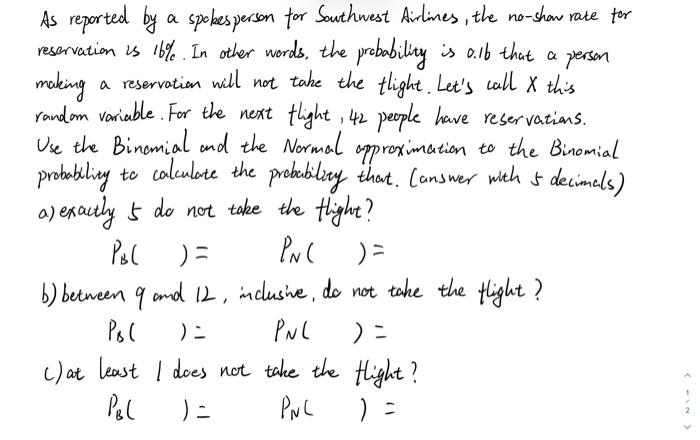 As reported by a spokesperson for Southwest Airlines, the no-show rate for
reservation is 16%. In other words, the probability is 0.16 that a person
making a reservation will not take the flight. Let's call X this
random variable. For the next flight, 42 people have reservations.
Use the Binomial and the Normal approximation to the Binomial
probability to calculate the probability that. (answer with 5 decimals)
a) exactly 5 do not take the flight?
PB( ) = PN( ) =
b) between 9 and 12, inclusive, do not take the flight?
PB( ) = PN( ) =
c) at least 1 does not take the flight?
PB( ) = PN( ) =
1
2